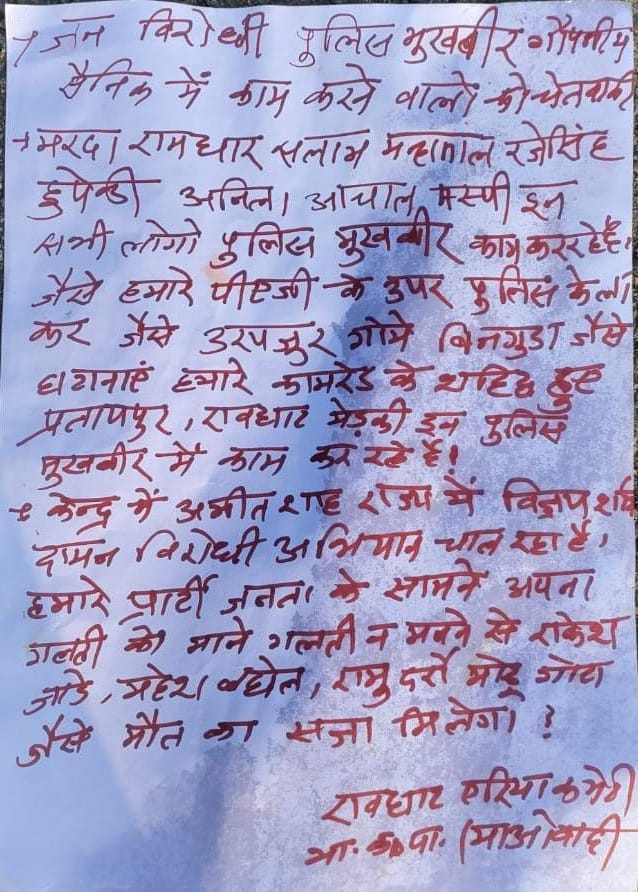 → जन विरोधी पुलिस मुखबीर गोपनीय
सैनिक में काम करने वालो को चेतवानी
→ मरदा रामधार सलाम महापाल रजेसिंह
डुपेल्डी अनिल। आचाल मस्पी इन
सभी लोगो पुलिस मुखबीर काम कर रहे है।
जैसे हमारे पीएजी के उपर पुलिस केला
कर जैसे उरपजुर गोमे बिनागुडा जैसे
घागनाएं हमारे कामरेड के शाहिद हुए
प्रतापपुर, रावघाट मेड़की इन पुलिस
मुखबीर में काम कर रहे है।
→ केन्द्र में अमीत शाह राज्य में विजय
दामन विरोधी अभियान चाल रहा है,
हमारे प्रार्टी जनता के सामने अपना
गलती को माने गलती न मनने से राकेश
जाडे, महेश बघेल, रामु दर्रो मोटू गोटा
जैसे मौत का सजा मिलेगा ?
रावघाट एरिया कमेटी
भा. क.पा. (माओवादी